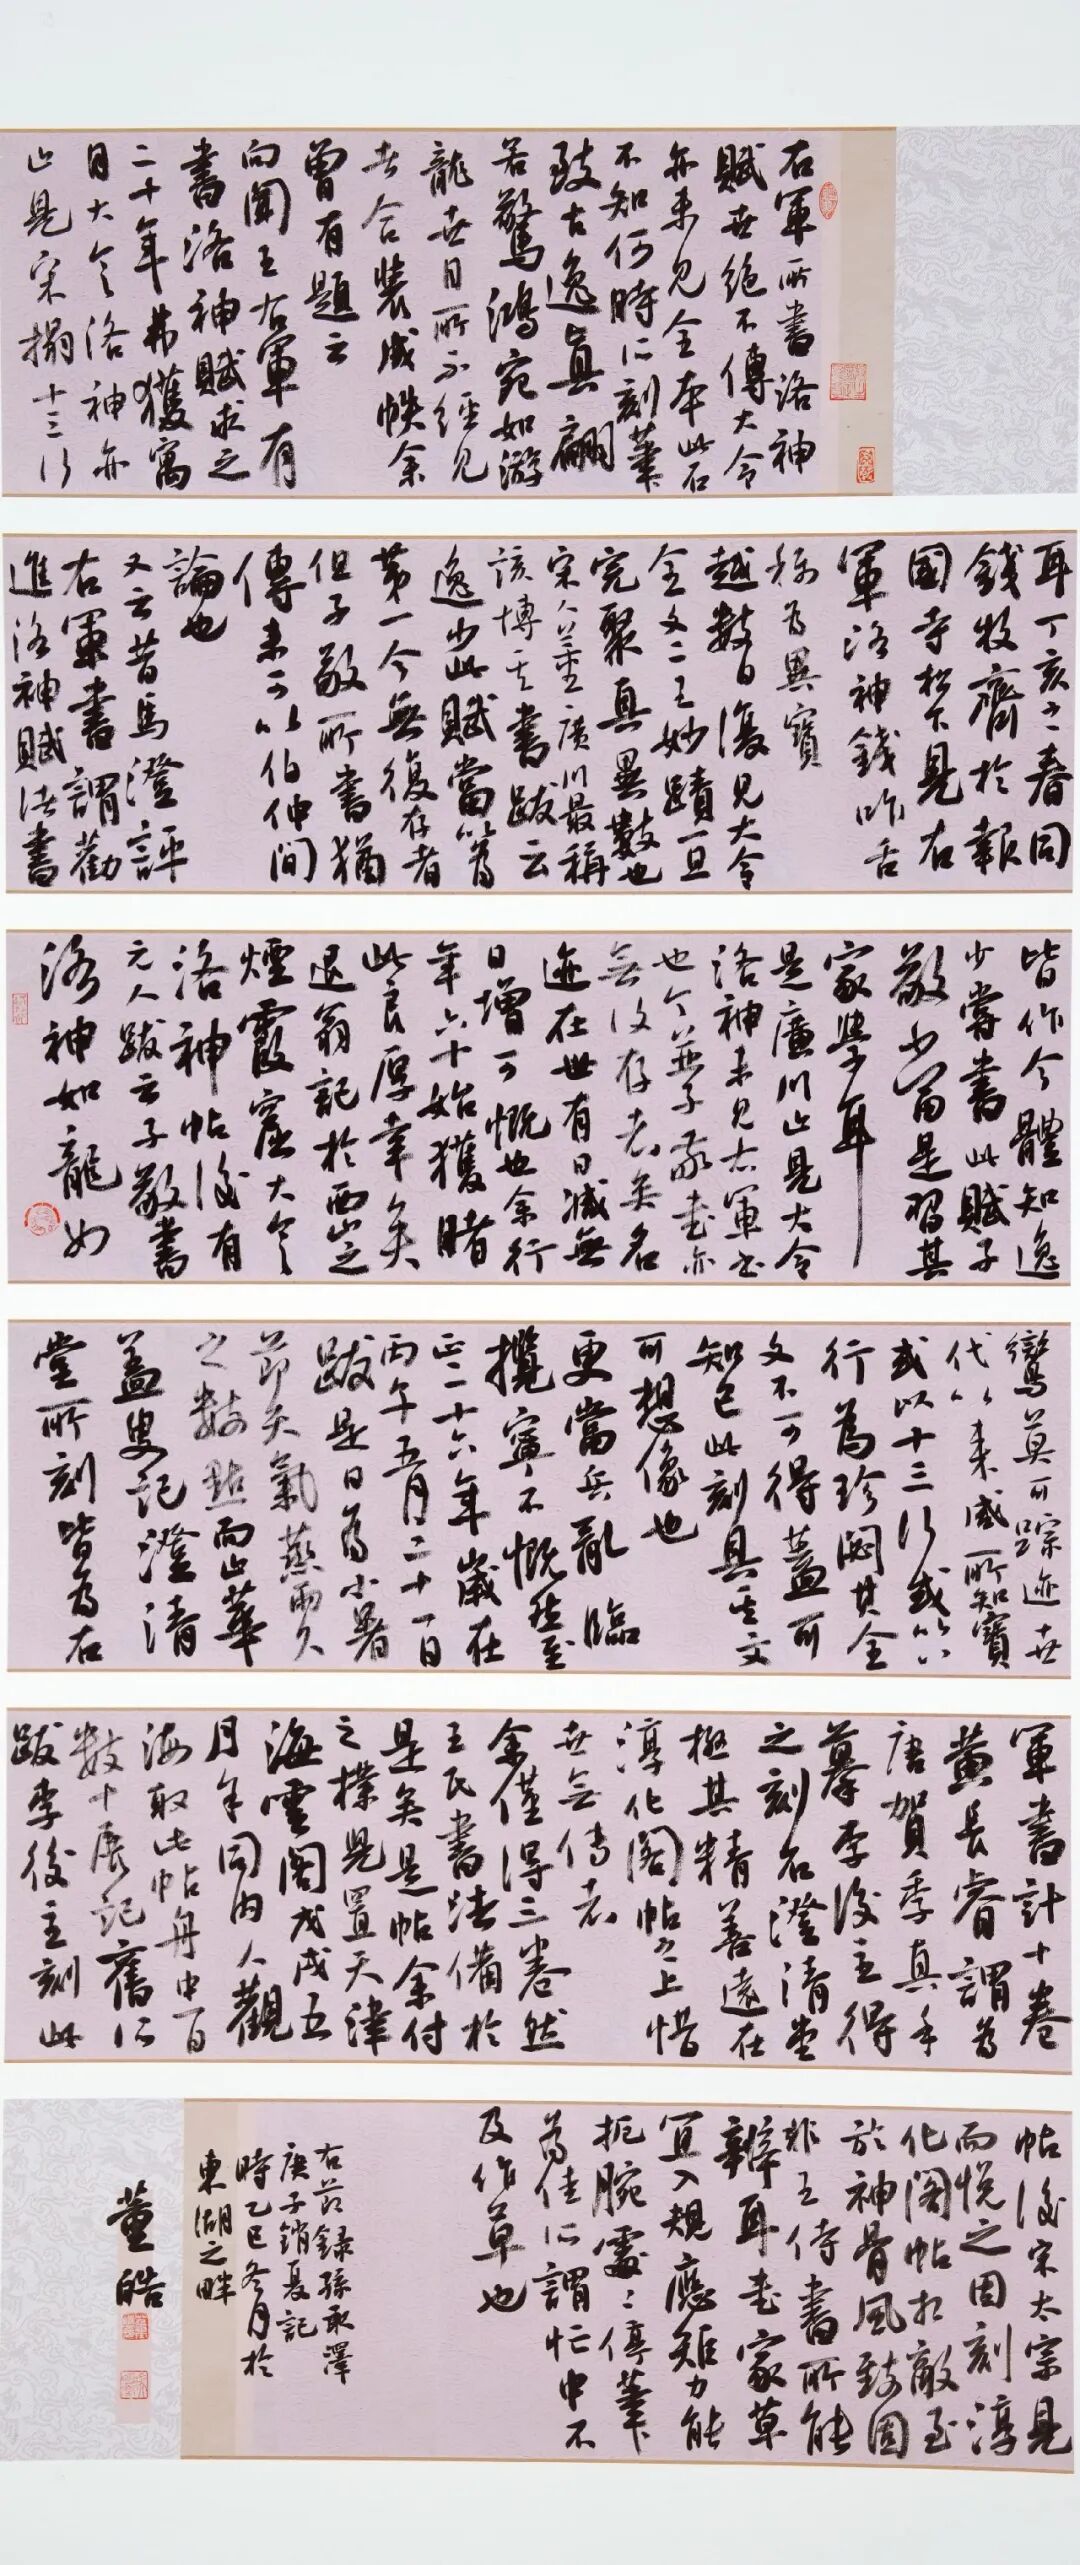 右軍所書洛神
賦世絕不傳大令
亦未見全本此石
不知何時所刻筆
致古逸真翩
若驚鴻宛如游
龍世目所不經見
者合裝成帙余
曾有題云
向聞王右軍有
書洛神賦求之
二十年弗獲寓
目大令洛神亦
止見宋搨十三行
耳丁亥之春同
錢牧齋於報
國寺松下見右
軍洛神錢咋舌
稱為異寶
越數日復見大令
全文二王妙蹟一旦
完聚真異數也
宋人董廣川最稱
該博其書跋云
逸少此賦當為
第一今無復存者
但子敬所書猶
傳未可以伯仲間
論也
又云昔馬澄評
右軍書謂勸
進洛神賦諸書
皆作今體知逸
少嘗書此賦子
敬少嘗是習其
家學耳
是廣川止見大令
洛神未見右軍書
也今並子敬書亦
無復存者矣名
迹在世有日減無
日增可慨也余行
年六十始獲睹
此良厚幸矣
退翁記於西山之
煙霞窟大令
洛神帖後有
元人跋云子敬書
洛神如龍如
鸞莫可踪迹世
代以來咸所知寶
或以十三行或以八
行為珍閟其全
文不可得蓋可
知已此刻具其文
可想像也
更當兵亂臨
攬寧不慨然至
正二十六年歲在
丙午五月二十一日
跋是日為小暑
節天氣蒸雨久
之數點而止華
蓋叟記澄清
堂所刻皆為右
軍書計十卷
黃長睿謂為
唐賀季真手
摹李後主得
之刻石澄清堂
極其精善遠在
淳化閣帖之上惜
世無傳者
余僅得三卷然
王氏書法備於
是矣是帖余付
之樸兒置天津
海雲閣戊戌五
月年同內人觀
海取此帖舟中日
數十展記舊所
跋李後主刻此
帖後宋太宗見
而悅之因刻淳
化閣帖相敵至
於神骨風致固
非王侍書所能
辨耳書家草
宜入規應矩力能
扼腕處處停筆
為佳所謂忙中不
及作草也
右節錄孫承澤
庚子銷夏記
時乙巳冬月於
東湖之畔
董皓